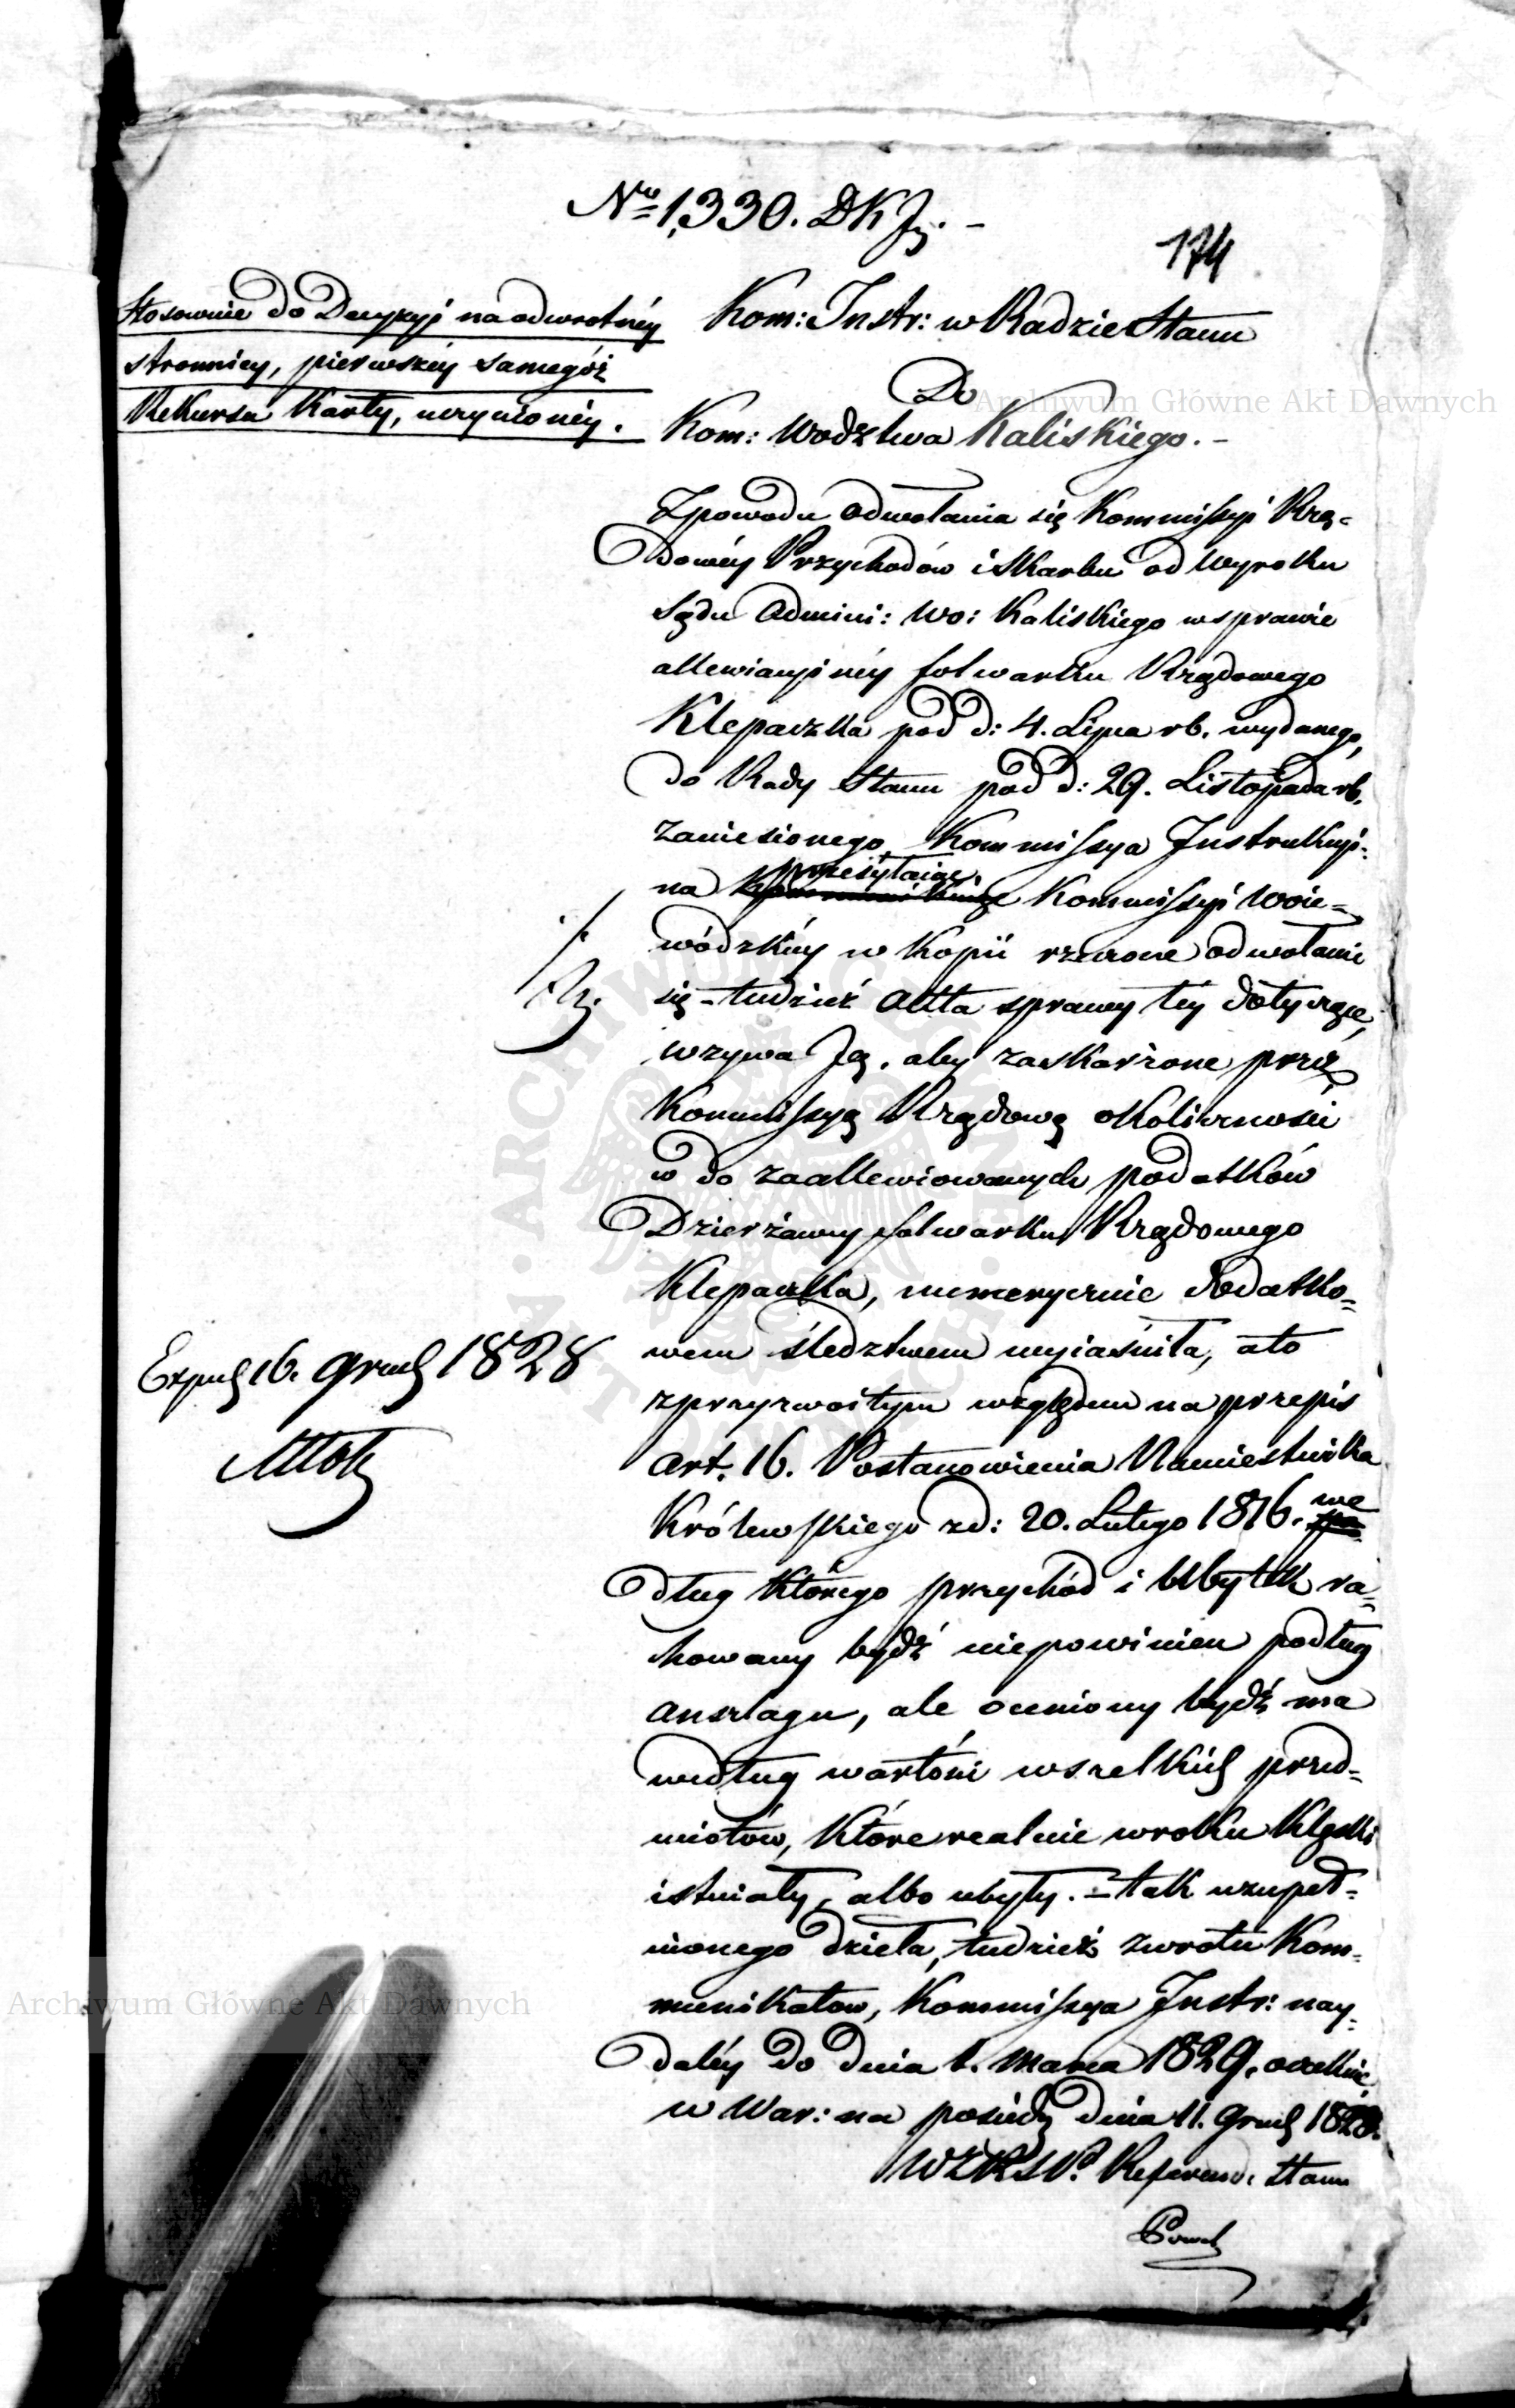 Nro 1,330. DKJ. -
174
Stosownie do Decyzyi na odwrotnéy
stronnicy, pierwszéy samegóż
Rekursu Karty, uczynionéy.
Kom: Instr: w Radzie Stanu
Do
Kom: Wodztwa Kaliskiego. -
Z powodu odwołania się Kommissyi Rzą-
dowéy Przychodów i Skarbu od Wyroku
Sądu Admini: Wo: Kaliskiego w sprawie
allewiacyinéy folwarku Rządowego
Klepaczka pod d: 4. Lipca rb. wydanego,
do Rady Stanu pod d: 29. Listopada rb.
zaniesionego, Kommissya Instrukcyi-
na przesyłaiąc Kommissyi Woie-
wódzkiéy w Kopii rzeczone odwołanie
się - tudzież Akta sprawy téy dotyczące,
wzywa Ją, aby zaskarżone przez
Kommissyą Rządową okoliczności
co do zaallewiowanych podatków
Dzierżawy folwarku Rządowego
Klepaczka, numerycznie dodatko-
wem śledztwem wyiaśniła, a to
z przyzwoitym względem na przepis
art. 16. Postanowienia Namiestnika
Królewskiego z d: 20. Lutego 1816. we
dług którego przychód i Ubytek ra-
chowany bydź niepowinien podług
anszlagu, ale oceniony bydź ma
według wartości wszelkich przed-
miotów, które realnie w roku Klęski
istniały, albo ubyły. - tak uzupeł-
nionego dzieła, tudzież zwrotu Kom-
munikatow, Kommissya Instr: nay-
daléy do dnia 1. Marca 1829. oczekuie.
w War: na posiedz dnia 11. Grud 1828.
Referend. Stanu
Exped 16. grud 1828